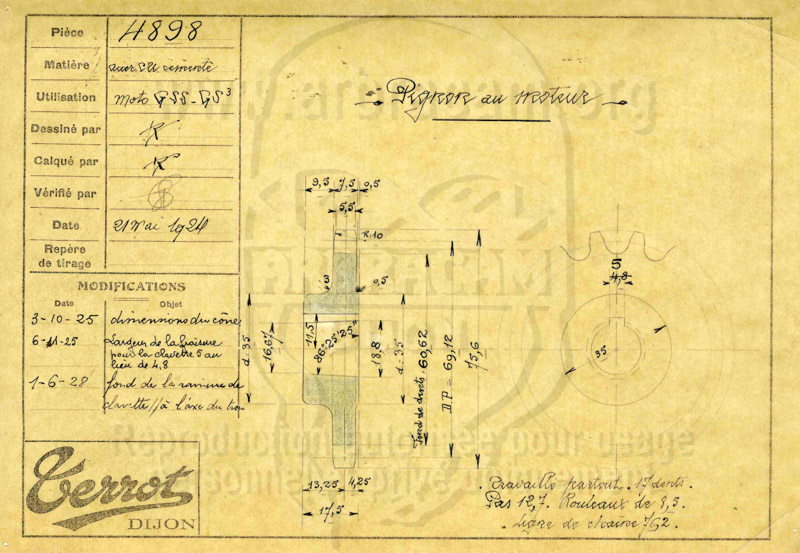 Pièce 4898
Matière acier CU cémenté
Utilisation Moto GSS-GS³
Dessiné par K
Calqué par K
Vérifié par
Date 21 Mai 1924
Repère
de tirage
MODIFICATIONS
Date Objet
3-10-25 dimensions du cône
6-11-25 Largeur de la rainure
pour la clavette 5 au
lieu de 4,8
1-6-28 fond de la rainure de
clavette // à l'axe du trou
Terrot
DIJON
Pignon au moteur
9,5 7,5 0,5
5,5
R.10
3
0,5
d.35
16,67
11,5
86°25'25"
18,8
d.35
fond de dents 60,62
D.P = 69,12
75,6
13,25 4,25
17,5
5
4,8
35
Travaillé partout. 17 dents.
Pas 12,7. Rouleaux de 8,5.
Ligne de chaîne 762.
Reproduction autorisée pour usage